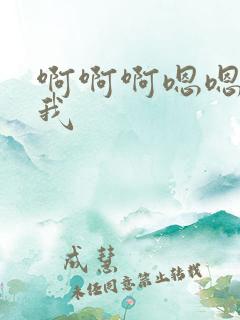 啊啊啊嗯嗯
我
成慧
未经同意禁止转载